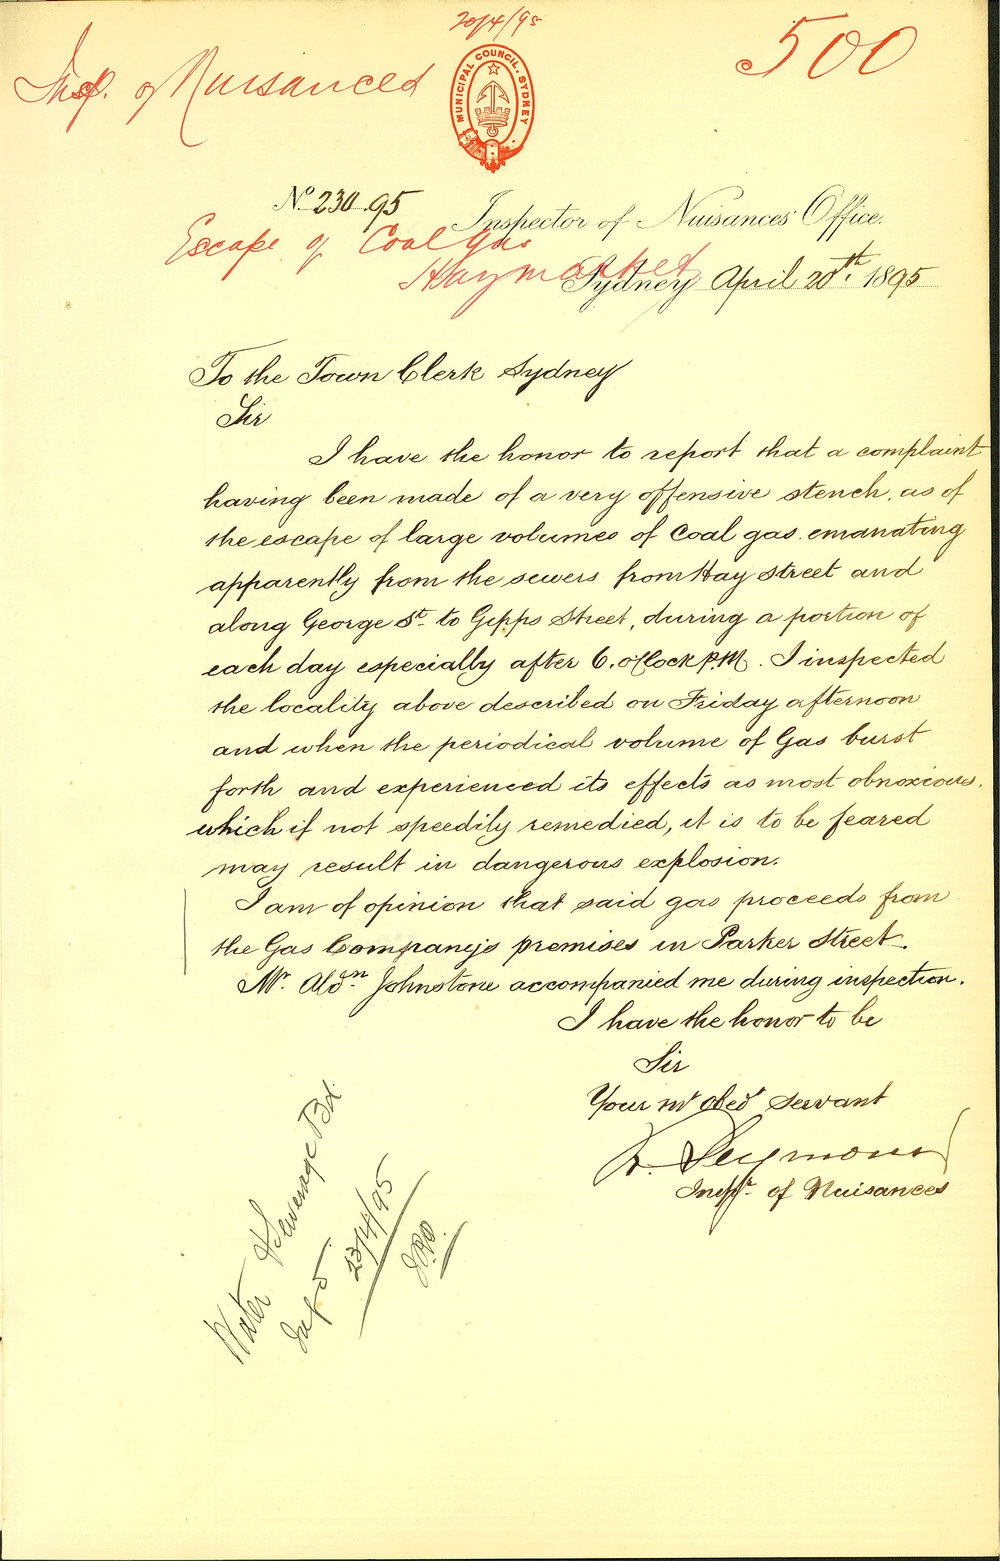 20/4/95
500
Insp. of Nuisances
MUNICIPAL COUNCIL. SYDNEY
No. 230.95
Inspector of Nuisances Office.
Escape of Coal Gas
Haymarket
Sydney April 20th. 1895
To the Town Clerk Sydney
Sir
I have the honor to report that a complaint
having been made of a very offensive stench, as of
the escape of large volumes of Coal gas emanating
apparently from the sewers from Hay street and
along George St. to Gipps Street, during a portion of
each day especially after 6. o'Clock P.M. I inspected
the locality above described on Friday afternoon
and when the periodical volume of Gas burst
forth and experienced its effects as most obnoxious.
which if not speedily remedied, it is to be feared
may result in dangerous explosion.
I am of opinion that said gas proceeds from
the Gas Company's premises in Parker Street.
Mr. Aldn. Johnstone accompanied me during inspection.
I have the honor to be
Sir
Your mt obedt servant
R. Seymour
Inspr. of Nuisances
Water & Sewerage Bd.
Infd. 23/4/95